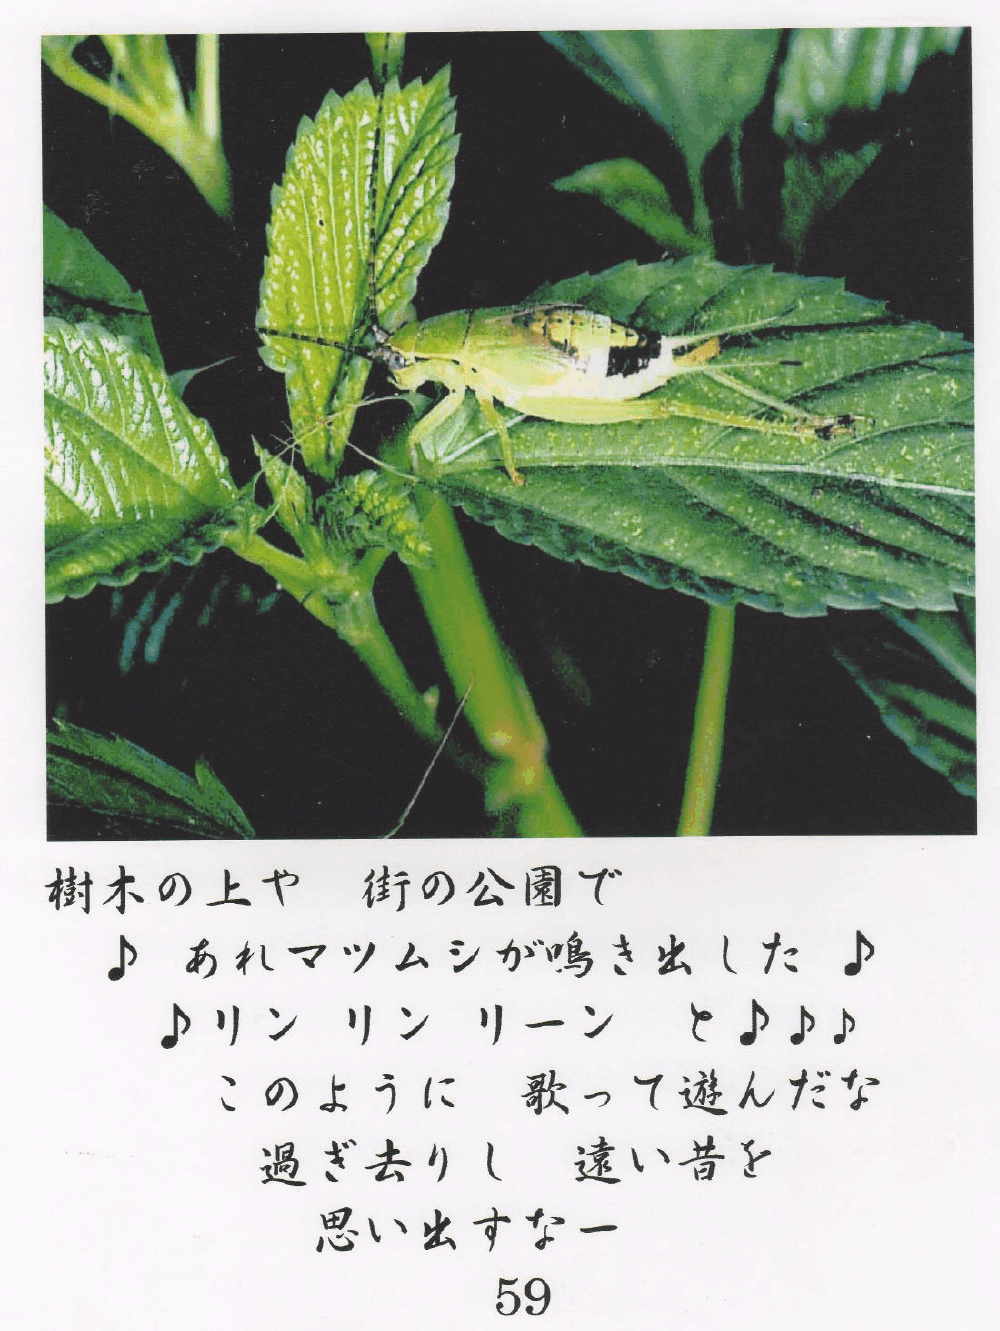 樹木の上や　街の公園で
♪ あれマツムシが鳴き出した ♪
♪リン リン リーン　と♪♪♪
このように　歌って遊んだな
過ぎ去りし　遠い昔を
思い出すなー
59